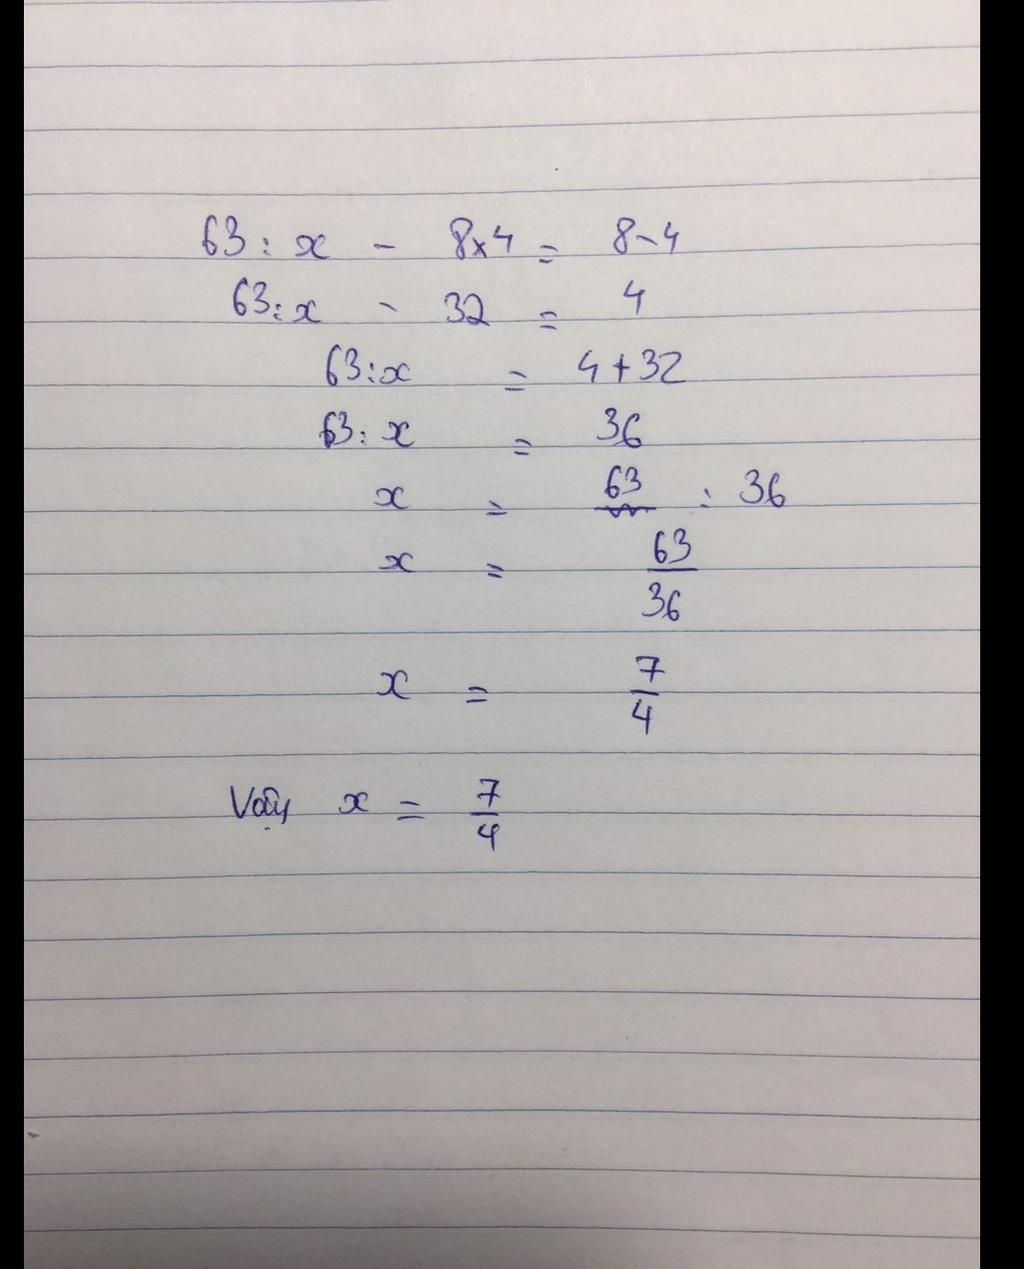 63 : x - 8x4 = 8-4
63 : x - 32 = 4
63 : x = 4+32
63 : x = 36
x = 63 : 36
x = 63/36
x = 7/4
Vậy x = 7/4